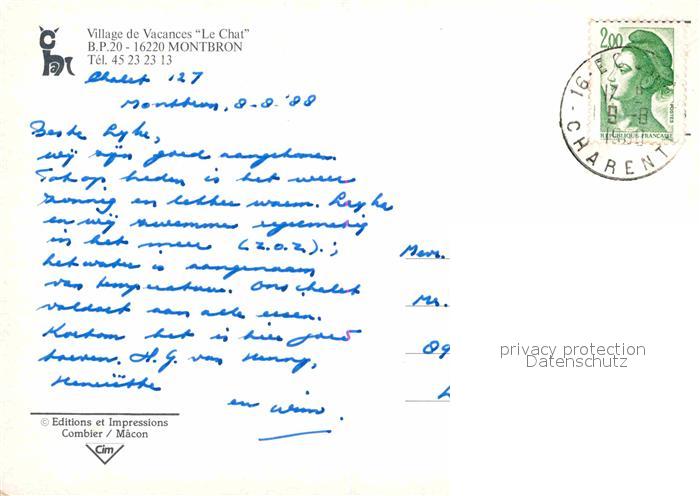 Village de Vacances "Le Chat"
B.P.20 - 16220 MONTBRON
Tél. 45 23 23 13
Chalet 127
Montbron, 8-8-'88
Beste
wij zijn goed aangekomen
Tot op heden is het weer
zonnig en lekker warm.
en wij zwemmen regelmatig
in het meer (z.o.z.).;
het water is aangenaam
van temperatuur. Ons chalet
voldoet aan alle eisen.
Kortom het is hier goed
toeven. H.G. van Henny,
Henriëtte
en Wim.
Mevr.
Mr.
89
© Editions et Impressions
Combier / Mâcon
Cim
2,00
POSTES
REPUBLIQUE FRANÇAISE
16
9-8
CHARENT
privacy protection
Datenschutz